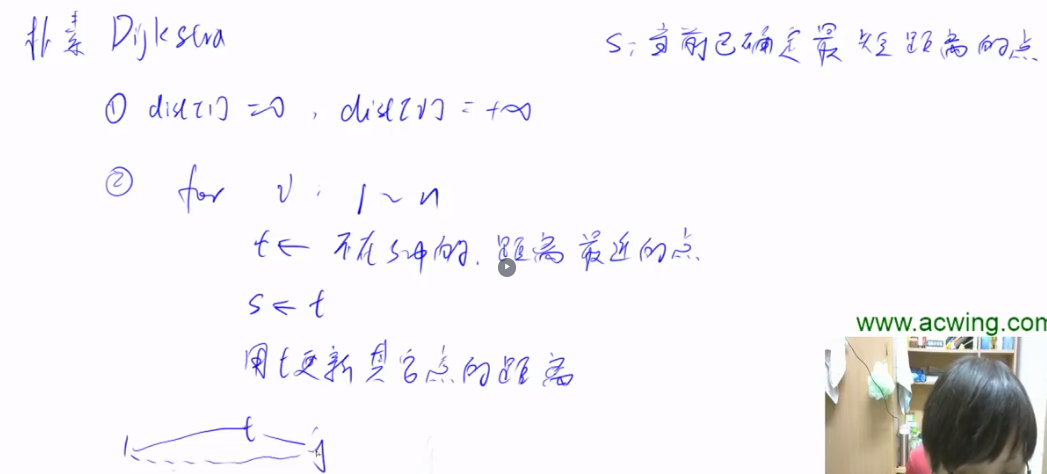 朴素 Dijkstra
s: 当前已确定最短距离的点
① dist[1] = 0, dist[v] = +∞
② for v: 1 ~ n
t ← 不在s中的, 距离最近的点
s ← t
用t更新其它点的距离
t
1 j
www.acwing.com